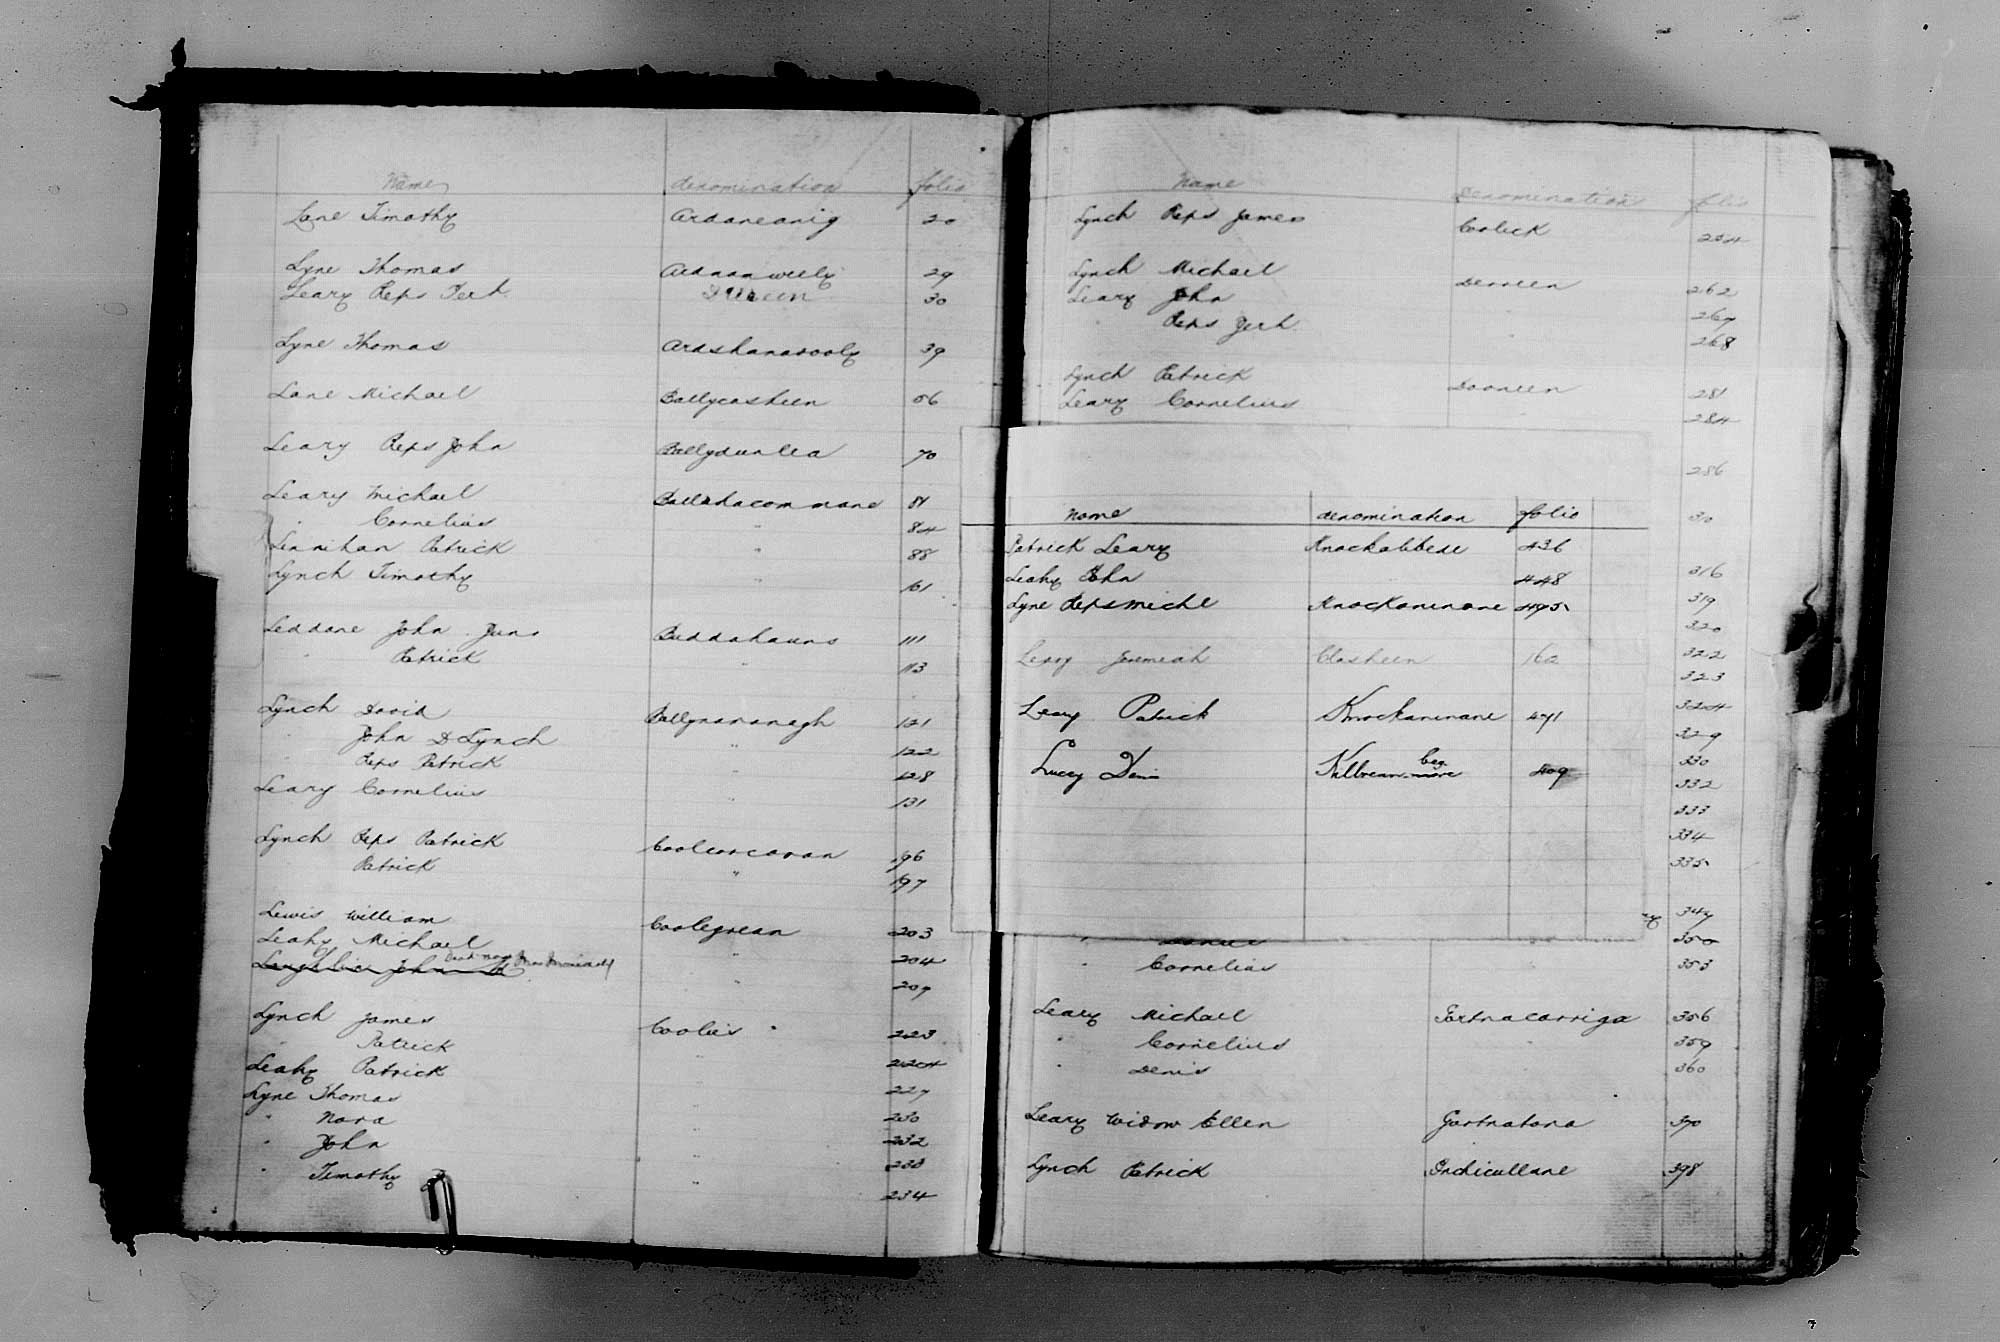 Name denomination folio
Lane Timothy Ardaneanig 20
Lyne Thomas Ardnaweely 29
Leary Reps Jerh Dureen 30
Lyne Thomas Ardshanavooly 39
Lane Michael Ballycasheen 56
Leary Reps John Ballydunlea 70
Leary Michael Ballahacommane 81
" Cornelius " 84
Lennihan Patrick " 88
Lynch Timothy " 101
Leddane John Junr Buddahauns 111
" Patrick " 113
Lynch David Ballynamanagh 121
" John D Lynch " 122
" Reps Patrick 128
Leary Cornelius " 131
Lynch Reps Patrick Coolcorcoran 196
Patrick " 197
Lewis William Coolegrean 203
Leahy Michael " 204
Laughlin John " 209
Lynch James Coolies 223
" Patrick 224
Leahy Patrick 227
Lyne Thomas 230
" Nora 232
" John 233
" Timothy " 234
Name Denomination folio
Lynch Reps James Coolick 254
Lynch Michael Derreen 262
Leary John 267
" Reps Jerh " 268
Lynch Patrick Doorneen 281
Leary Cornelius " 284
286
310
316
319
320
322
323
324
329
330
332
333
334
335
347
Name denomination folio
Patrick Leary Knockalibede 436
Leahy John 448
Lyne Reps Michl Knockaninane 495
Leary Jeremiah Clasheen 162
Leary Patrick Knockaninane 491
Lucey Denis Kilbrean more beg 409
" Daniel 350
" Cornelius " 353
Leary Michael Gortnacarriga 356
" Cornelius " 359
" Denis 360
Leary Widow Ellen Gortnatona 390
Lynch Patrick Inchicullane 398